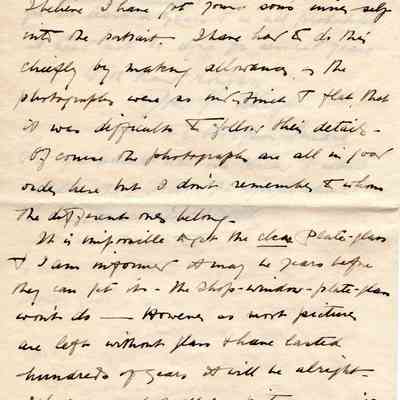 I believe I have got your sons inner self
into the portrait. I have had to do this
chiefly by making allowances, as the
photographs were so indistinct & flat that
it was difficult to follow their details -
Of course the photographs are all in good
order here but I don't remember to whom
the different ones belong -
It is impossible to get the clear plate-glass
& I am informed it may be years before
they can get it - The shop-window-plate-glass
won't do — However as most pictures
are left without glass & have lasted
hundreds of years it will be alright